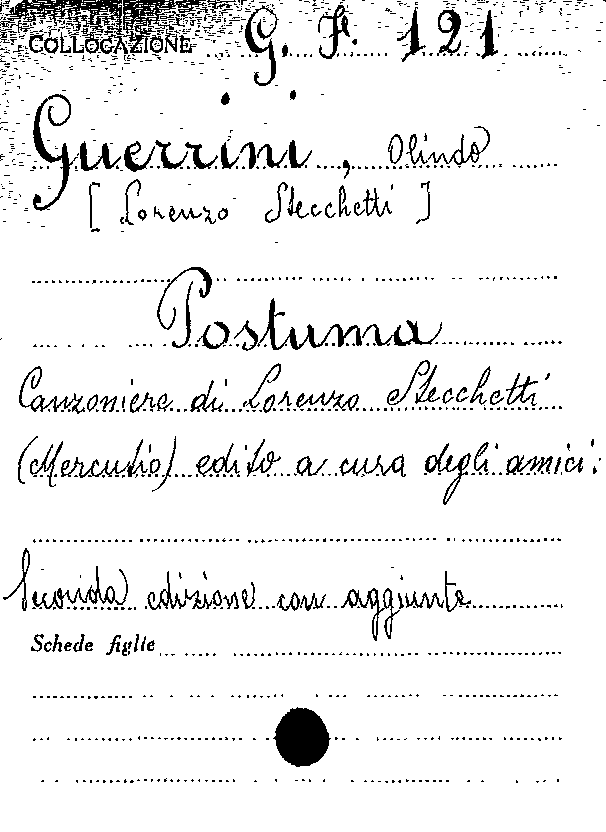 COLLOCAZIONE G. F. 121
Guerrini, Olindo
[Lorenzo Stecchetti]
Postuma
Canzoniere di Lorenzo Stecchetti
(Mercutio) edito a cura degli amici.
Seconda edizione con aggiunte
Schede figlie